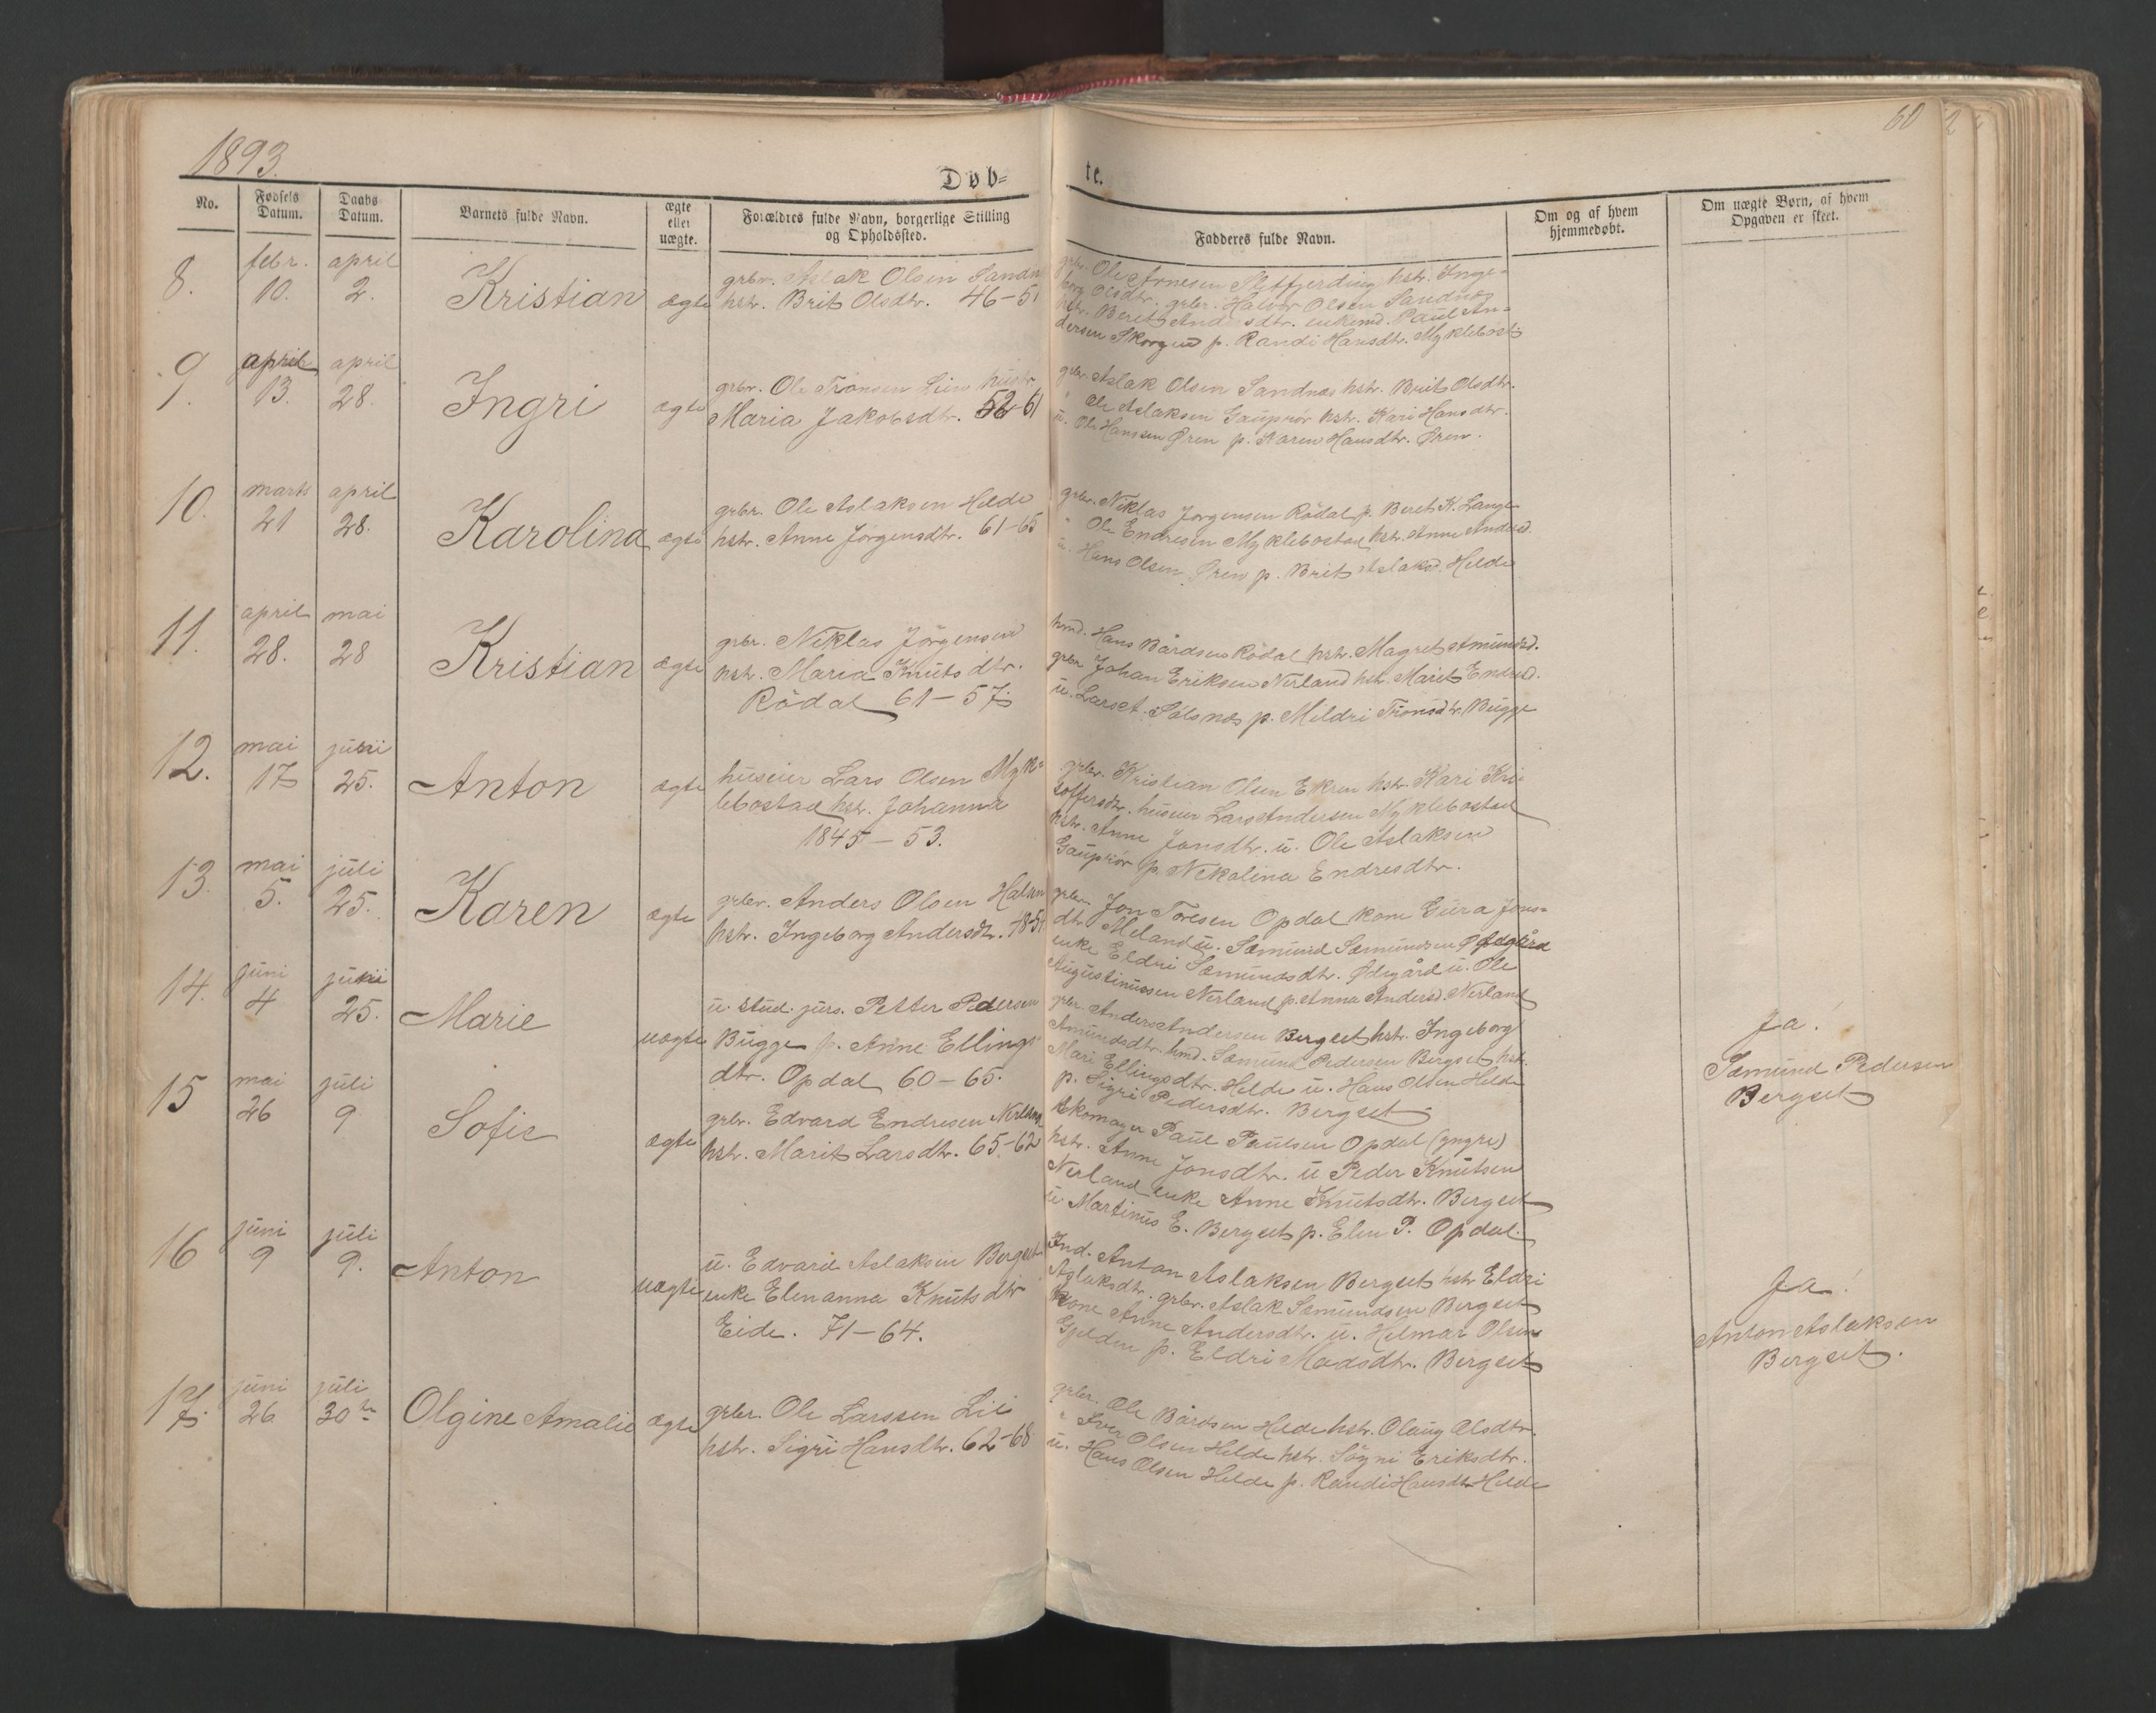 1893.
60
Døb-
te.
No.
Fødsels
Datum.
Daabs
Datum.
Barnets fulde Navn.
ægte
eller
uægte.
Forældres fulde Navn, borgerlige Stilling
og Opholdssted.
Fadderes fulde Navn.
Om og af hvem
hjemmedøbt.
Om uægte Børn, af hvem
Opgaven er skeet.
8.
febr.
10.
april
2.
Kristian
ægte
grbr. Aslak Olsen Sandn
hstr. Brit Olsdtr. 46-51
grbr. Ole Arnesen hstr. Inge-
borg Olsdtr. grbr. Halvor Olsen Sandnæs
hstr. Berit Andersdtr. enkemd. Paul An-
dersen Skorgen p. Randi Hansdtr. Myklebost
9.
april
13.
april
28.
Ingri
ægte
grbr. Ole Tronsen Lien hustr
Maria Jakobsdtr. 52-61
grbr. Aslak Olsen Sandnæs hstr. Brit Olsdtr.
" Ole Aslaksen Gauprör hstr. Kari Hansdtr.
u. Ole Hanssen Øren p. Karen Hansdtr. Øren.
10.
marts
21
april
28.
Karolina
ægte
grbr. Ole Aslaksen Helde
hstr. Anne Jørgensdtr. 61-65
grbr. Niklas Jørgensen Rödal p. Beret K. Lange
" Ole Endresen Myklebostad hstr. Anne Andersd.
u. Hans Olsen Øren p. Brit Aslaksd. Helde
11.
april
28.
mai
28
Kristian
ægte
grbr. Niklas Jörgensen
hstr. Maria Knutsdtr.
Rödal 61-57
hmd. Hans Bårdsen Rödal hstr. Magret Amundsd.
grbr Johan Eriksen Nerland hstr. Marit Endresd.
u. Lars A. Sølsnæs p. Mildri Tronsdtr. Bugge
12.
mai
17
juni
25.
Anton
ægte
huseier Lars Olsen Myk-
lebostad hstr. Johanna
1845-53.
grbr. Kristian Olsen Ekren hstr Kari Kri-
stoffersdtr. huseier Lars Andersen Myklebostad
hstr. Anne Jonsdtr. u. Ole Aslaksen
Gauprör p. Nikolina Endresdtr.
13.
mai
5.
juli
25.
Karen
ægte
grbr. Anders Olsen Halsen
hstr. Ingeborg Andersdtr. 48-54
grbr. Jon Toresen Opdal kone Gura Jons-
dtr. Meland u. Sæmund Sæmundsen Ødegård
enke Eldri Sæmundsdtr. Ødegård u. Ole
Augustinussen Nerland p. Anna Andersd. Nerland
14.
juni
4
juni
25.
Marie
uægte
u. stud. jurs. Petter Pedersen
Bugge p. Anne Ellings
dtr. Opdal 60-65.
grbr. Anders Andersen Bergset hstr. Ingeborg
Amundsdtr. hmd. Sæmund Pedersen Bergset hstr.
Mari Ellingsdtr. Helde u. Hans Olsen Helde
p. Sigri Pedersdtr. Bergset
Ja!
Sæmund Pedersen
Bergset
15
mai
26
juli
9
Sofie
ægte
grbr. Edvard Endresen Nerland
hstr. Marit Larsdtr. 65-62
skomager Paul Paulsen Opdal (yngre)
hstr. Anne Jonsdtr. u Peder Knutsen
Nerland enke Anne Knutsdtr. Bergset
u Martinus E. Bergset p. Elen P. Opdal.
16
juni
9
juli
9.
Anton
uægte
u. Edvard Aslaksen Bergset
enke Elenanna Knutsdtr
Eide. 71-64.
Ind. Anton Aslaksen Bergset hstr Eldri
Aslaksdtr. grbr. Aslak Sæmundsen Bergset
kone Anne Andersdtr. u. Helmar Olsen
Gjelden p. Eldri Madsdtr. Bergset
Ja!
Anton Aslaksen
Bergset.
17.
juni
26
juli
30te
Olgine Amalie
ægte
grbr. Ole Larssen Lie
hstr. Sigri Hansdtr. 62-68
grbr. Ole Bårdsen Helde hstr. Olaug Olsdtr.
" Iver Olsen Helde hstr. Sögni Eriksdtr.
u. Hans Olsen Helde p. Randi Hansdtr Helde